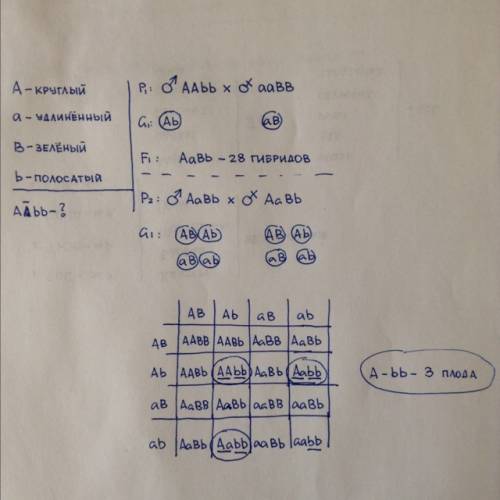 A - круглый
a - удлинённый
B - зелёный
b - полосатый
A_bb - ?
P₁: ♂ AAbb × ♂ aaBB
G₁: Ab aB
F₁: AaBb - 28 гибридов
P₂: ♂ AaBb × ♂ AaBb
G₁: AB Ab AB Ab
aB ab aB ab
AB Ab aB ab
AB AABB AABb AaBB AaBb
Ab AABb AAbb AaBb Aabb
aB AaBB AaBb aaBB aaBb
ab AaBb Aabb aaBb aabb
A - bb - 3 плода